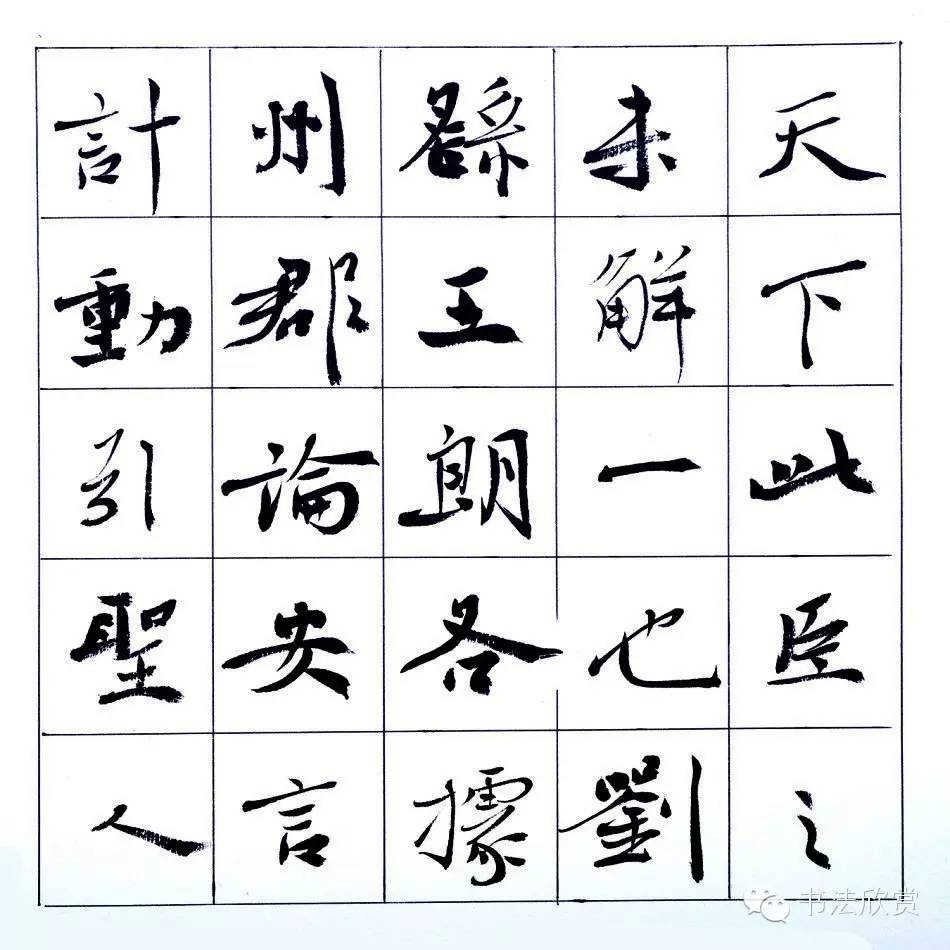 天下此臣之
未解一也劉
繇王朗各據
州郡論安言
計動引聖人
书法欣赏